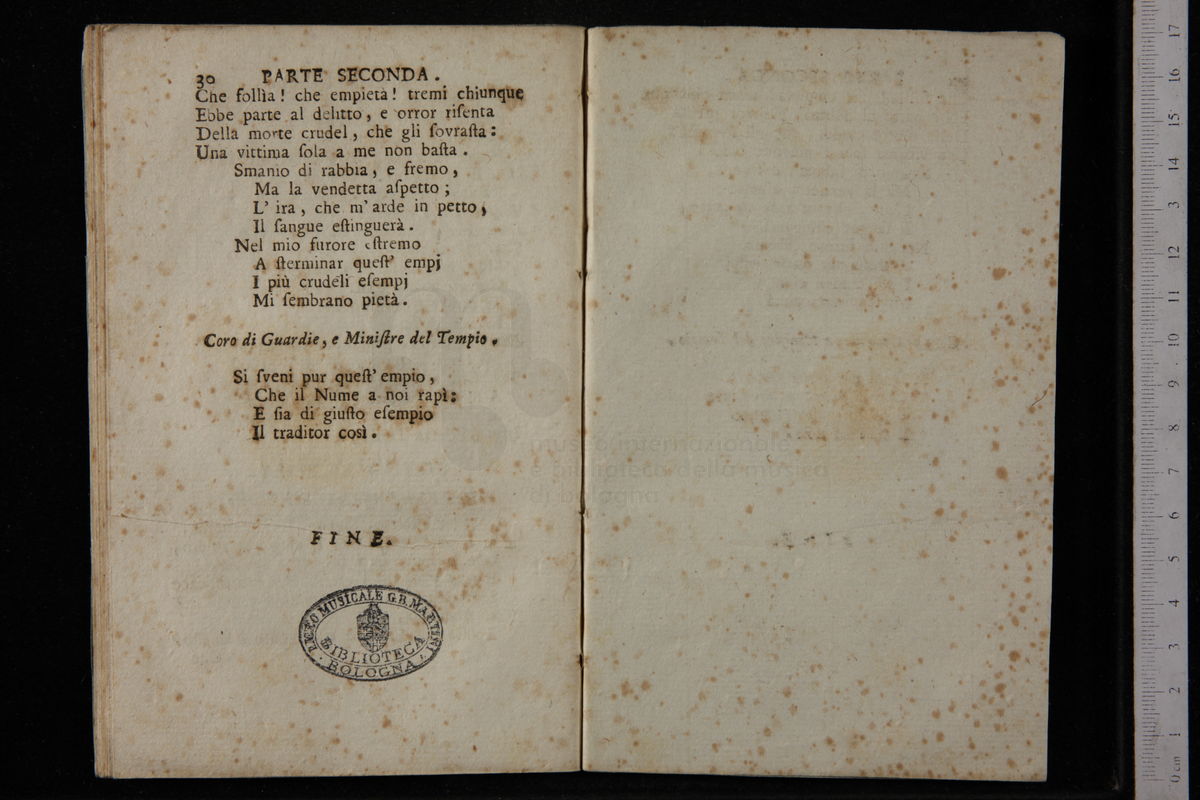 30 PARTE SECONDA.
Che follìa! che empietà! tremi chiunque
Ebbe parte al delitto, e orror riſenta
Della morte crudel, che gli ſovraſta:
Una vittima ſola a me non baſta.
Smanio di rabbia, e fremo,
Ma la vendetta aſpetto;
L' ira, che m' arde in petto,
Il ſangue eſtinguerà.
Nel mio furore eſtremo
A ſterminar queſt' empj
I più crudeli eſempj
Mi ſembrano pietà.
Coro di Guardie, e Miniſtre del Tempio.
Si ſveni pur queſt' empio,
Che il Nume a noi rapì:
E ſia di giuſto eſempio
Il traditor così.
FINE.
LICEO MUSICALE G.B. MARTINI
BIBLIOTECA
BOLOGNA
museo internazionale
e biblioteca della musica
di bologna
0 cm 1 2 3 4 5 6 7 8 9 10 11 12 3 14 15 16 17